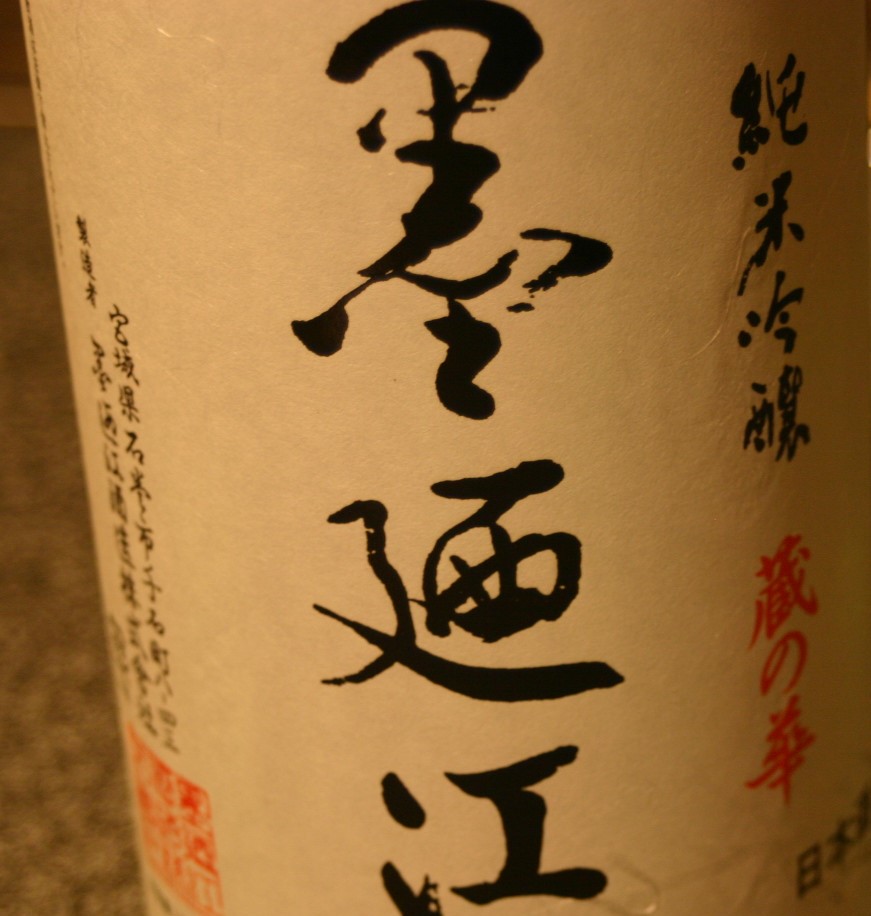 純米吟醸 蔵の華
日本
墨廼江
宮城県石巻市千石町八ノ四三
製造者 墨廼江酒造株式会社